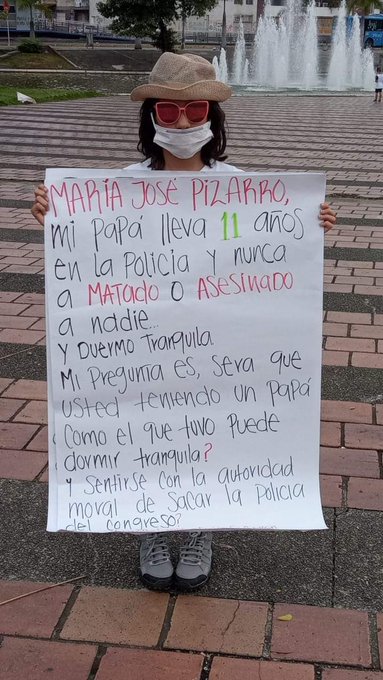 MARIA JOSÉ PIZARRO,
mi papá lleva 11 años
en la Policia y nunca
a MATADO O ASESINADO
a nadie...
Y DUERMO TRANQUILA.
Mi Pregunta es, sera que
usted teniendo un Papá
como el que tuvo Puede
dormir tranquila?
Y Sentirse con la autoridad
moral de Sacar la Policia
del congreso?